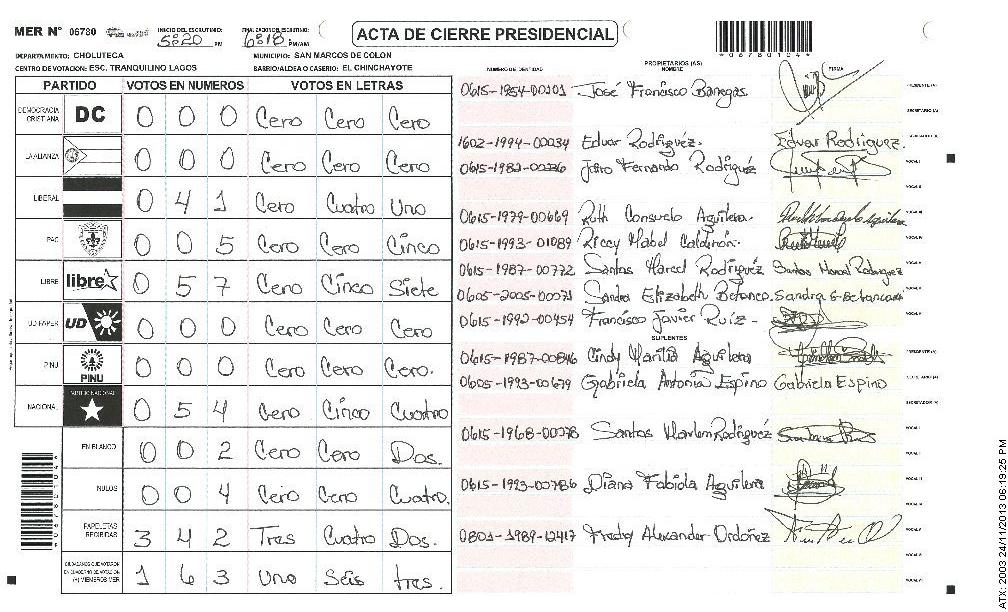 MER N° 06780 INICIO DEL ESCRUTINIO: 5:20 PM FINALIZACION ESCRUTINIO: 6:18 PM/AM ACTA DE CIERRE PRESIDENCIAL
0678010
DEPARTAMENTO: CHOLUTECA MUNICIPIO: SAN MARCOS DE COLON
CENTRO DE VOTACION: ESC. TRANQUILINO LAGOS BARRIO/ALDEA O CASERIO: EL CHINCHAYOTE
PARTIDO VOTOS EN NUMEROS VOTOS EN LETRAS
DEMOCRACIA CRISTIANA DC 0 0 0 Cero Cero Cero
LA ALIANZA 0 0 0 Cero Cero Cero
LIBERAL 0 4 1 Cero Cuatro Uno
PAC 0 0 5 Cero Cero Cinco
LIBRE libre 0 5 7 Cero Cinco Siete
UD-FAPER UD 0 0 0 Cero Cero Cero
PINU PINU 0 0 0 Cero Cero Cero.
NACIONAL PARTIDO NACIONAL 0 5 4 Cero Cinco Cuatro
EN BLANCO 0 0 2 Cero Cero Dos.
NULOS 0 0 4 Cero Cero Cuatro.
PAPELETAS RECIBIDAS 3 4 2 Tres Cuatro Dos.
CIUDADANOS QUE VOTARON EN CUADERNO DE VOTACION (+) MIEMBROS MER 1 6 3 Uno Seis tres.
NUMERO DE IDENTIDAD PROPIETARIOS (AS) NOMBRE FIRMA
0615-1954-00101 José Francisco Banegas PRESIDENTE (A)
SECRETARIO (A)
1602-1994-00034 Edvar Rodriguéz. Edvar Rodriguez.
0615-1982-00236 Jairo Fernando Rodriguéz VOCAL I
VOCAL II
0615-1979-00669 Ruth Consuelo Aguilera VOCAL III
0615-1993-01089 Riccy Mabel Calderón. VOCAL IV
0615-1987-00772 Santos Marcel Rodriguéz Santos Marcel Rodriguez VOCAL V
0605-2005-00071 Sandra Elizabeth Betanco. Sandra E. Betanco
0615-1992-00454 Francisco Javier Ruíz.
SUPLENTES
0615-1987-00846 Cindy Marilia Aguilera PRESIDENTE (A)
0605-1993-00679 Gabriela Antonia Espino Gabriela Espino SECRETARIO (A)
0615-1968-00078 Santos Marlen Rodriguéz VOCAL I
0615-1993-00786 Diana Fabiola Aguilera
0801-1989-12417 Fredy Alexander Ordoñez
ATX: 2003 24/11/2013 06:19:25 PM